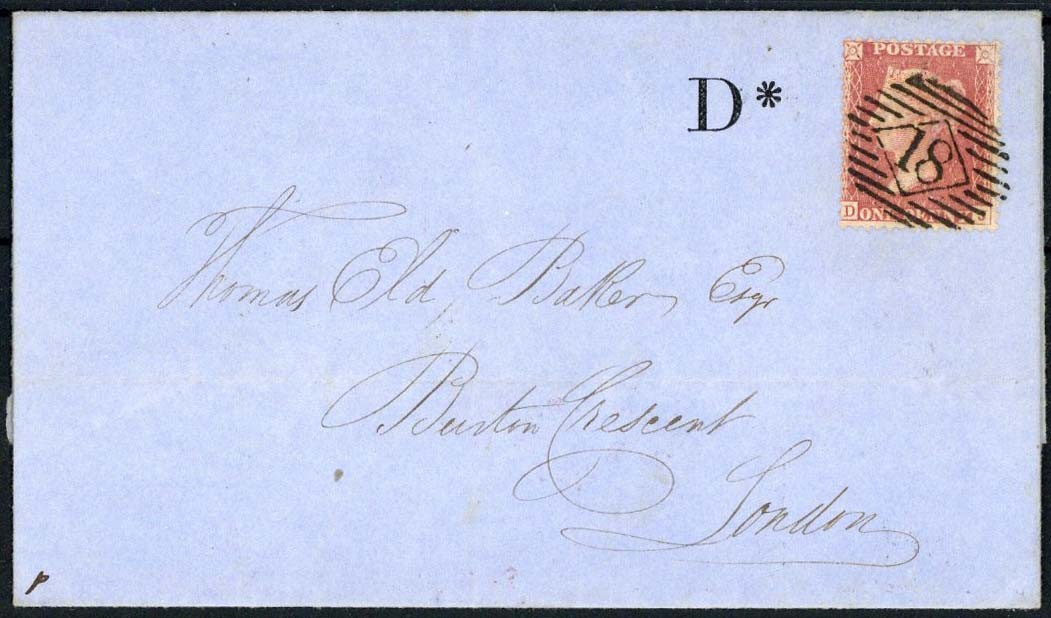 POSTAGE
D*
18
D ONE PENNY
Thomas Old Baker Esqr
Burton Crescent
London